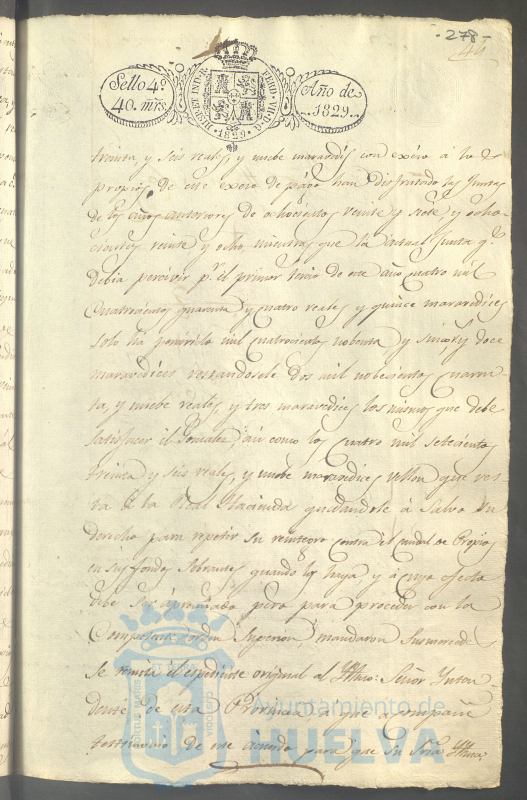 -278-
Sello 4º
40. mrs.
HISP. ET IND. R.
FERD. VII. D. G.
1829
Año de
1829
treinta y seis reales, y nuebe maravedis con
propios de este exeso de pago han disfrutado las Juntas
de los años anteriores de ochocientos veinte y siete, y ocho
cientos veinte y ocho, mientras que la actual Junta qe
debia percivir pr. el primer tercio de este año quatro mil
Cuatrocientos quarenta y cuatro reales y quince maravedices
solo ha percivido mil quatrocientos nobenta y sinco, y doce
maravedices restandosele dos mil nobecientos quaren-
ta, y nuebe reales, y tres maravedices los mismos que debe
satisfacer el, asi como los quatro mil setecientos
treinta y seis reales, y nuebe maravedices vellon que res-
ta á la Real Hacienda quedandole á Salvo su
derecho para repetir su reintegro contra el caudal de Propios
en sus fondos sobrantes quando los haya y á cuyo efecto
debe ser apremiado pero para proceder con la
Competente orden Superior, mandaron Susmercedes
se remita el espediente original al Yltmo. Señor Ynten-
dente de esta Provincia a que acompañe
testimonio de este acuerdo para que Su Sria. Yltma.
Ayuntamiento de
HUELVA
PORTUS MARIS
CUSTODIA